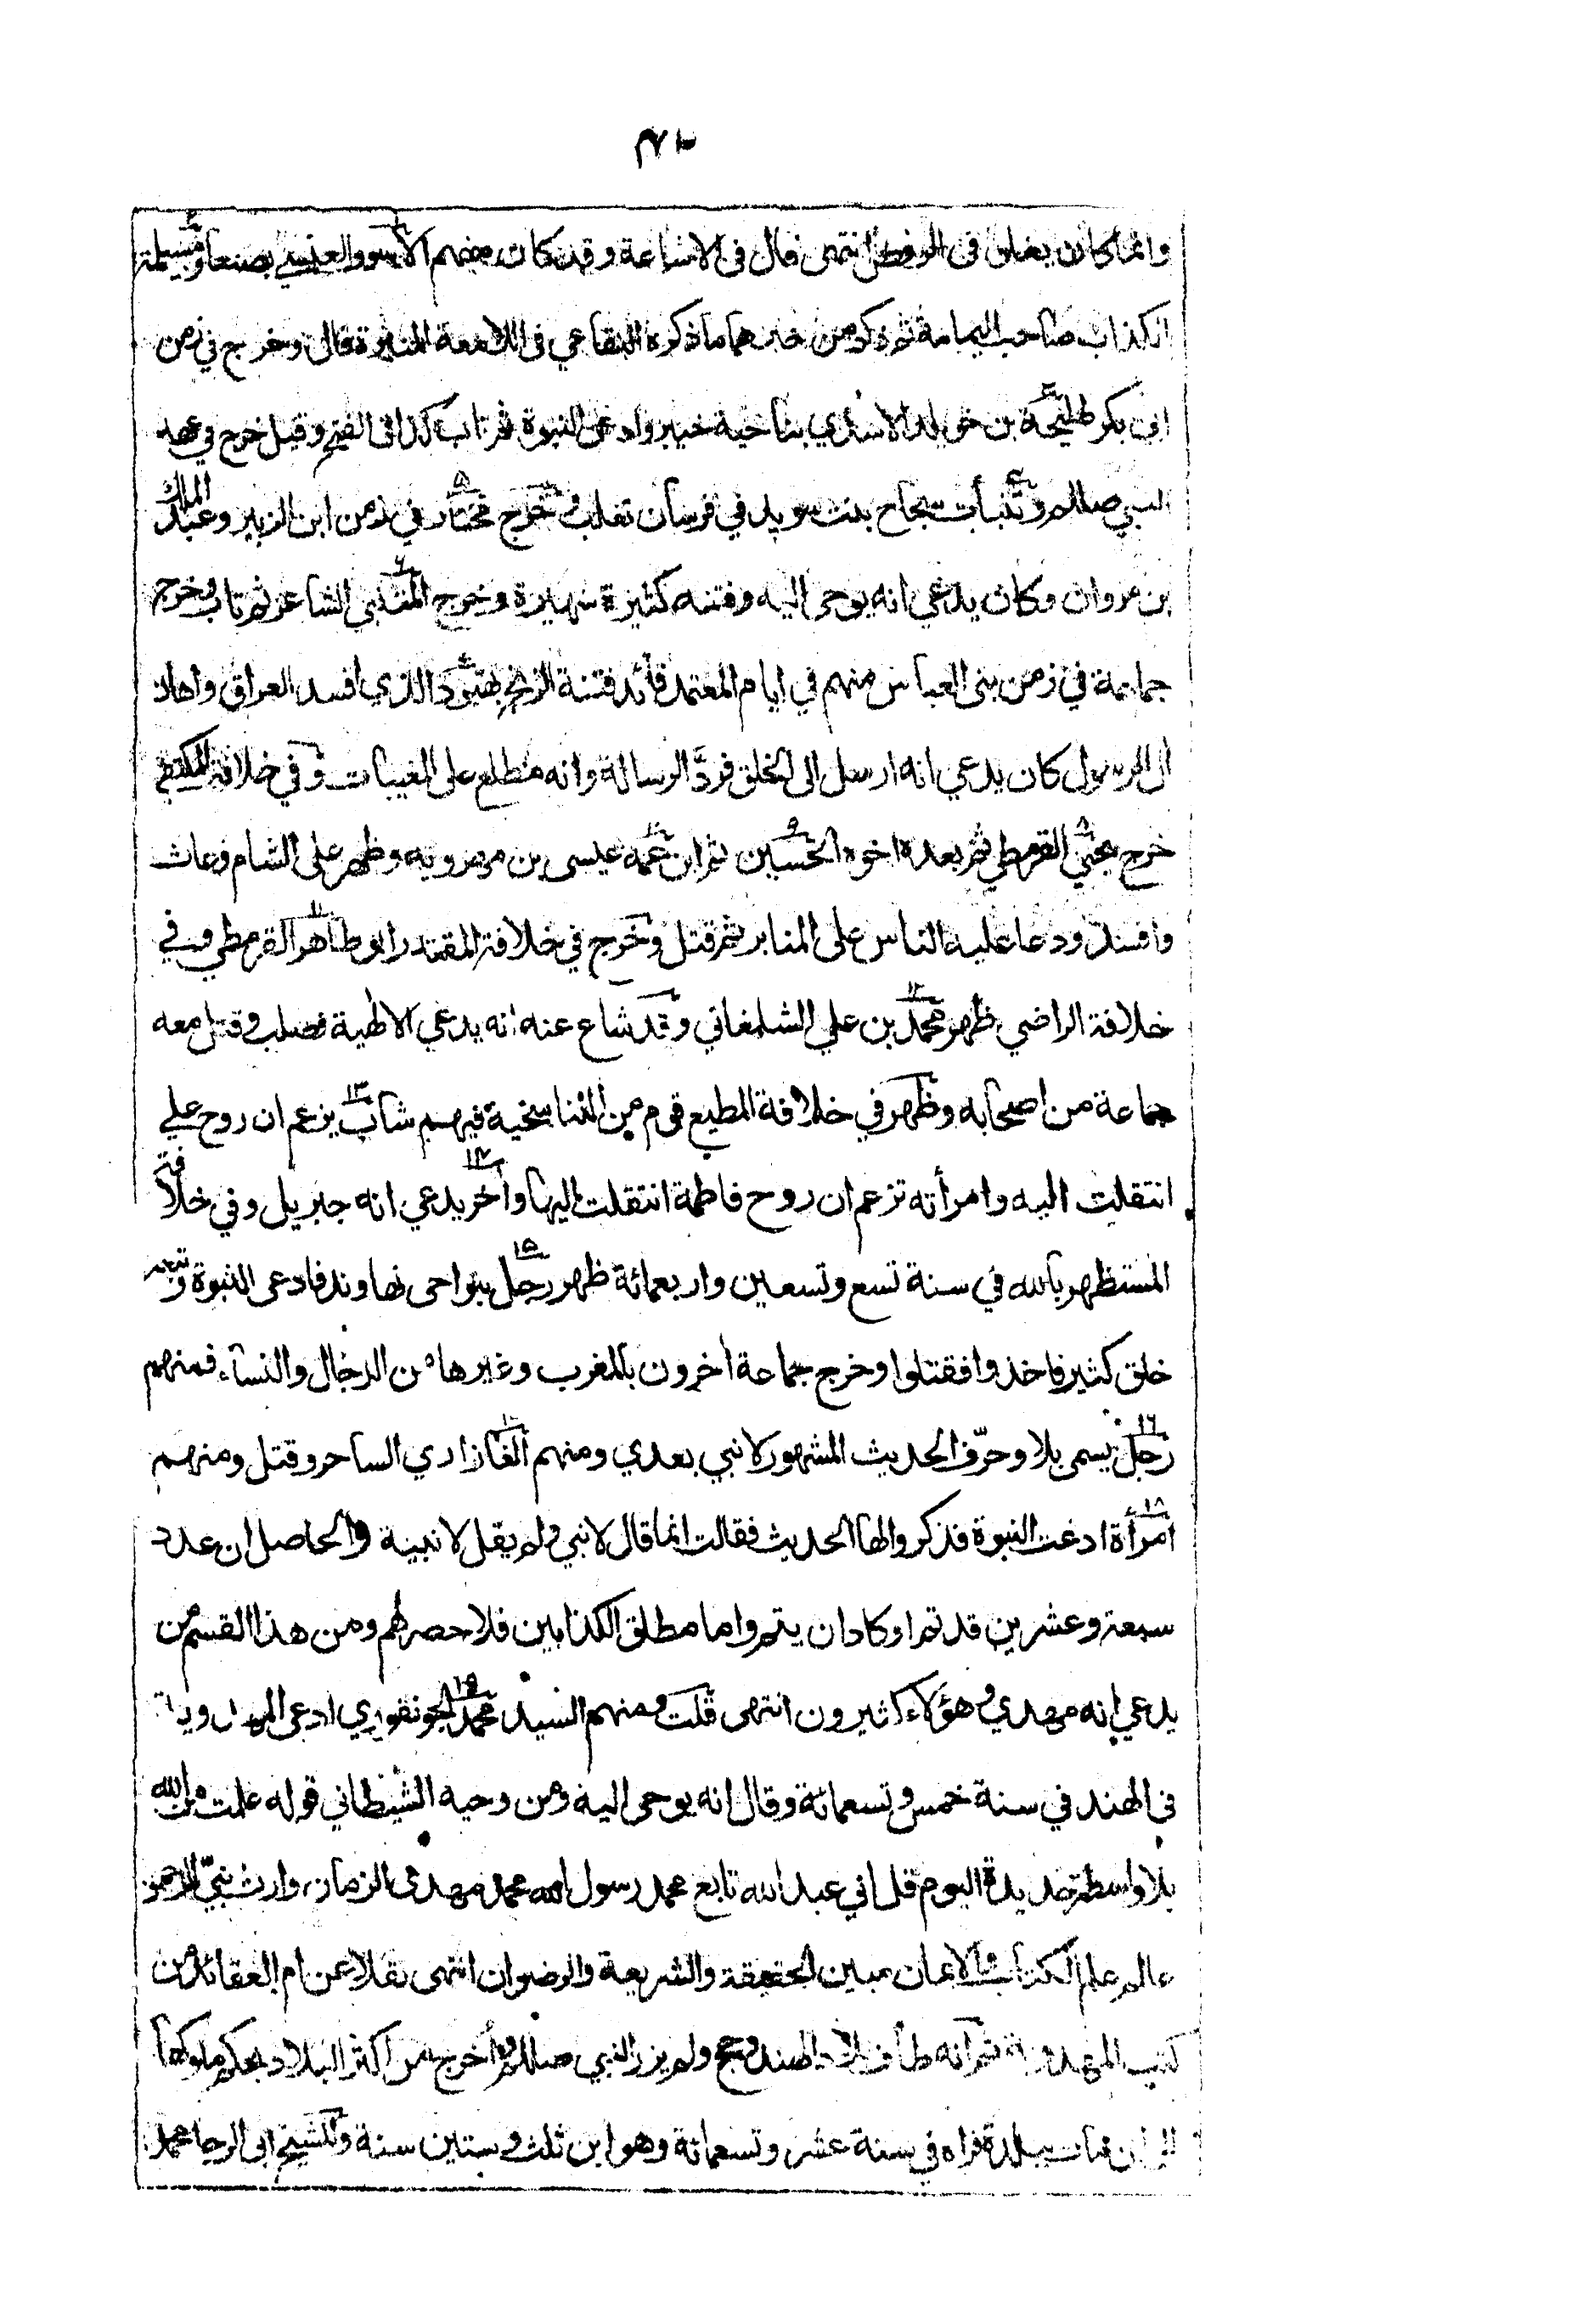 وانما كان يغلو في الرفض انتهى قال في الاشاعة وقد كان منهم الاسود العنسي بصنعا ومسيلمة
الكذاب صاحب اليمامة ثم ذكر من خبرهما ما ذكره البقاعي في اللامعة المنيرة قال وخرج في زمن
ابي بكر طليحة بن خويلد الاسدي بناحية خيبر وادعى النبوة ثم تاب كذا في الفتح وقيل خرج في عهد
النبي صللم وتنبأت سجاح بنت سويد في فرسان تغلب وخرج مختار في زمن ابن الزبير وعبد الملك
بن مروان وكان يدعي انه يوحى اليه وفتنه كثيرة شهيرة وخرج المتنبي الشاعر ثم تاب وخرج
جماعة في زمن بني العباس منهم في ايام المعتمد قائد فتنة الزنج بهبود الذي افسد العراق واهان
آل الرسول كان يدعي انه ارسل الى الخلق فردَّ الرسالة وانه مطلع على المغيبات وفي خلافة المكتفي
خرج يحيى القرمطي ثم بعده اخوه الحسين ثم ابن عمه عيسى بن مهرويه وظهر على الشام وعاث
وافسد ودعا عليه الناس على المنابر ثم قتل وخرج في خلافة المقتدر ابو طاهر القرمطي وفي
خلافة الراضي ظهر محمد بن علي الشلمغاني وقد شاع عنه انه يدعي الالهية فصلب وقتل معه
جماعة من اصحابه وظهر في خلافة المطيع قوم من التناسخية فيهم شاب يزعم ان روح علي
انتقلت اليه وامرأته تزعم ان روح فاطمة انتقلت اليها وآخر يدعي انه جبريل وفي خلافة
المستظهر بالله في سنة تسع وتسعين واربعمائة ظهر رجل بنواحى نهاوند فادعى النبوة وتبعه
خلق كثير فاخذوا فقتلوا وخرج جماعة آخرون بالمغرب وغيرها من الرجال والنساء فمنهم
رجل يسمى بلا وحرّف الحديث المشهور لا نبي بعدي ومنهم الغازاري الساحر وقتل ومنهم
امرأة ادعت النبوة فذكروا لها الحديث فقالت انما قال لا نبي ولم يقل لا نبية والحاصل ان عدد
سبعة وعشرين قد تم او كاد ان يتم واما مطلق الكذابين فلا حصر لهم ومن هذا القسم من
يدعي انه مهدي وهؤلاء كثيرون انتهى قلت ومنهم السيد محمد الجونفوري ادعى
في الهند في سنة خمس وتسعمائة وقال انه يوحى اليه ومن وحيه الشيطاني قوله علمت من الله
بلا واسطة جديدة اليوم قل اني عبد الله تابع محمد رسول الله محمد مهدي الزمان وارث نبيّ الرحمن
عالم علم الكتاب والايمان مبين الحقيقة والشريعة والرضوان انتهى نقلا عن ام العقائد من
كتب المهدوية ثم انه طاف بلاد الهند وحج ولم يزر النبي صللم وأخرج من اكثر البلاد بحكم ملوكها
الى ان مات ببلدة فراه في سنة عشر وتسعمائة وهو ابن ثلث وستين سنة وللشيخ ابي الرجا محمد